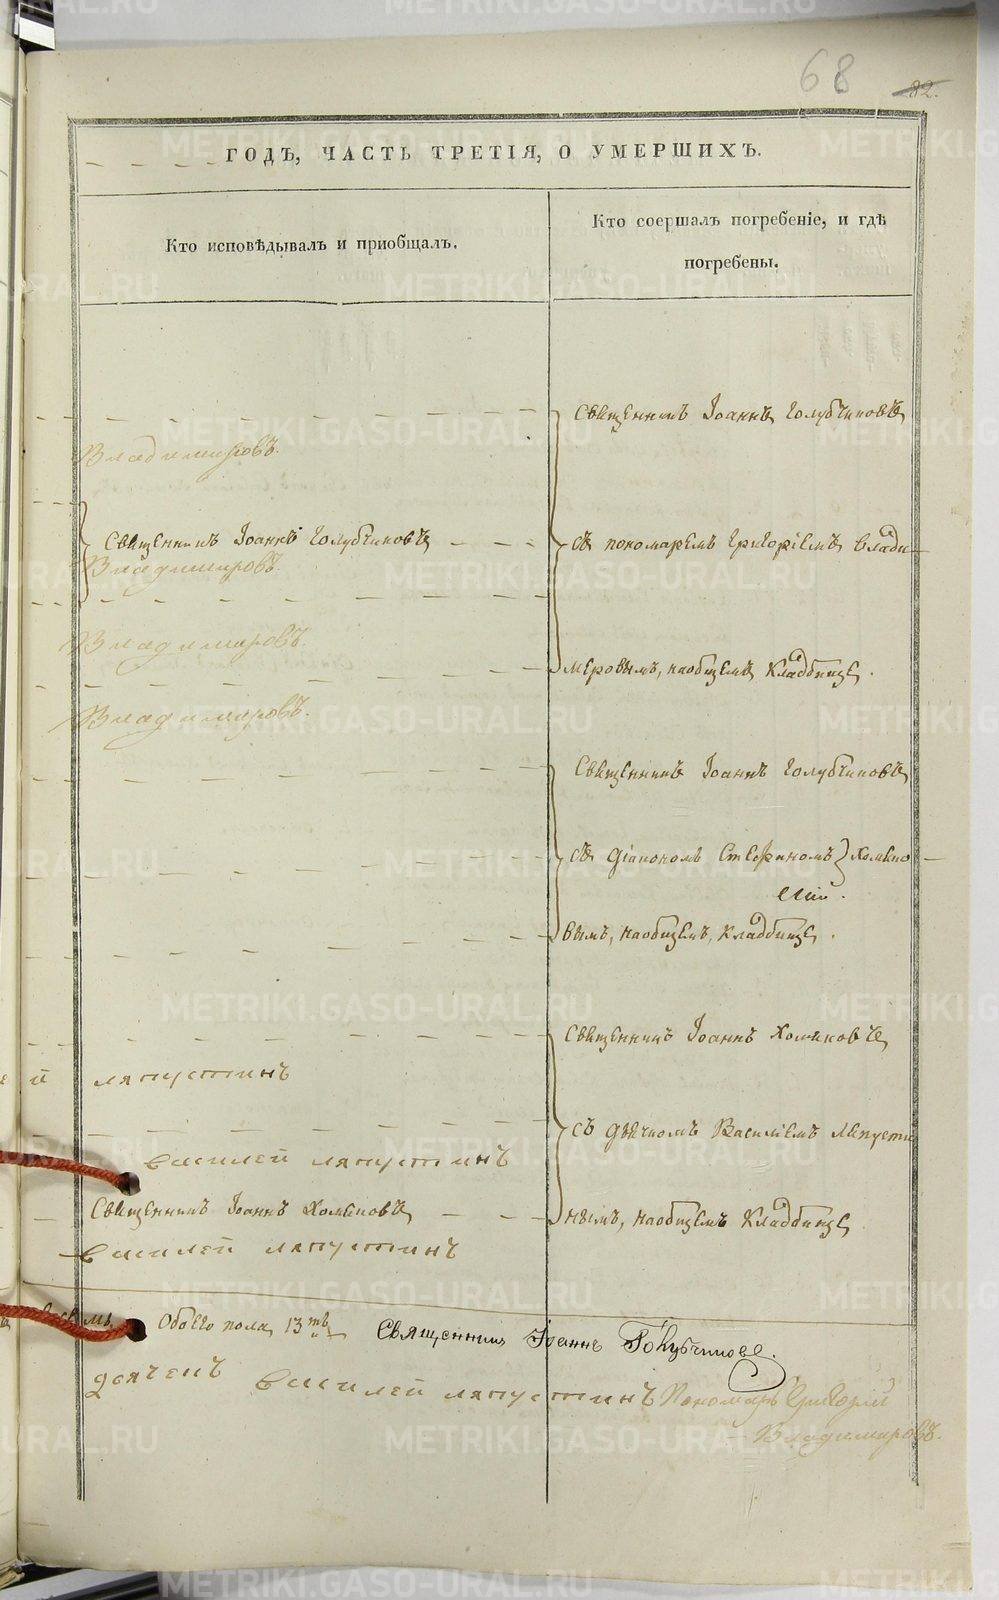 68
82.
ГОДЪ, ЧАСТЬ ТРЕТІЯ, О УМЕРШИХЪ.
Кто исповѣдывалъ и приобщалъ.
Кто соершалъ погребеніе, и гдѣ
погребены.
Священникъ Іоаннъ Голубчиковъ
Владимировъ.
Священникъ Іоаннъ Голубчиковъ
съ пономаремъ Григоріемъ Влади-
Владимировъ.
Владимировъ.
меровымъ, наобщемъ Кладбище.
Владимировъ.
Священникъ Іоаннъ Голубчиковъ
съ діакономъ Стефаномъ Хомяко-
вымъ, наобщемъ, Кладбище.
Священникъ Іоаннъ Хомяковъ
ей ляпустинъ
съ дьячкомъ Василіемъ Ляпусти
василей ляпустинъ
Священникъ Іоаннъ Хомяковъ
нымъ, наобщемъ Кладбище
василей ляпустинъ
Обоего пола 13ть Священникъ Іоаннъ Голубчиковъ.
дьячекъ василей ляпустинъ Пономарь Григорій
Владимировъ.
METRIKI.GASO-URAL.RU